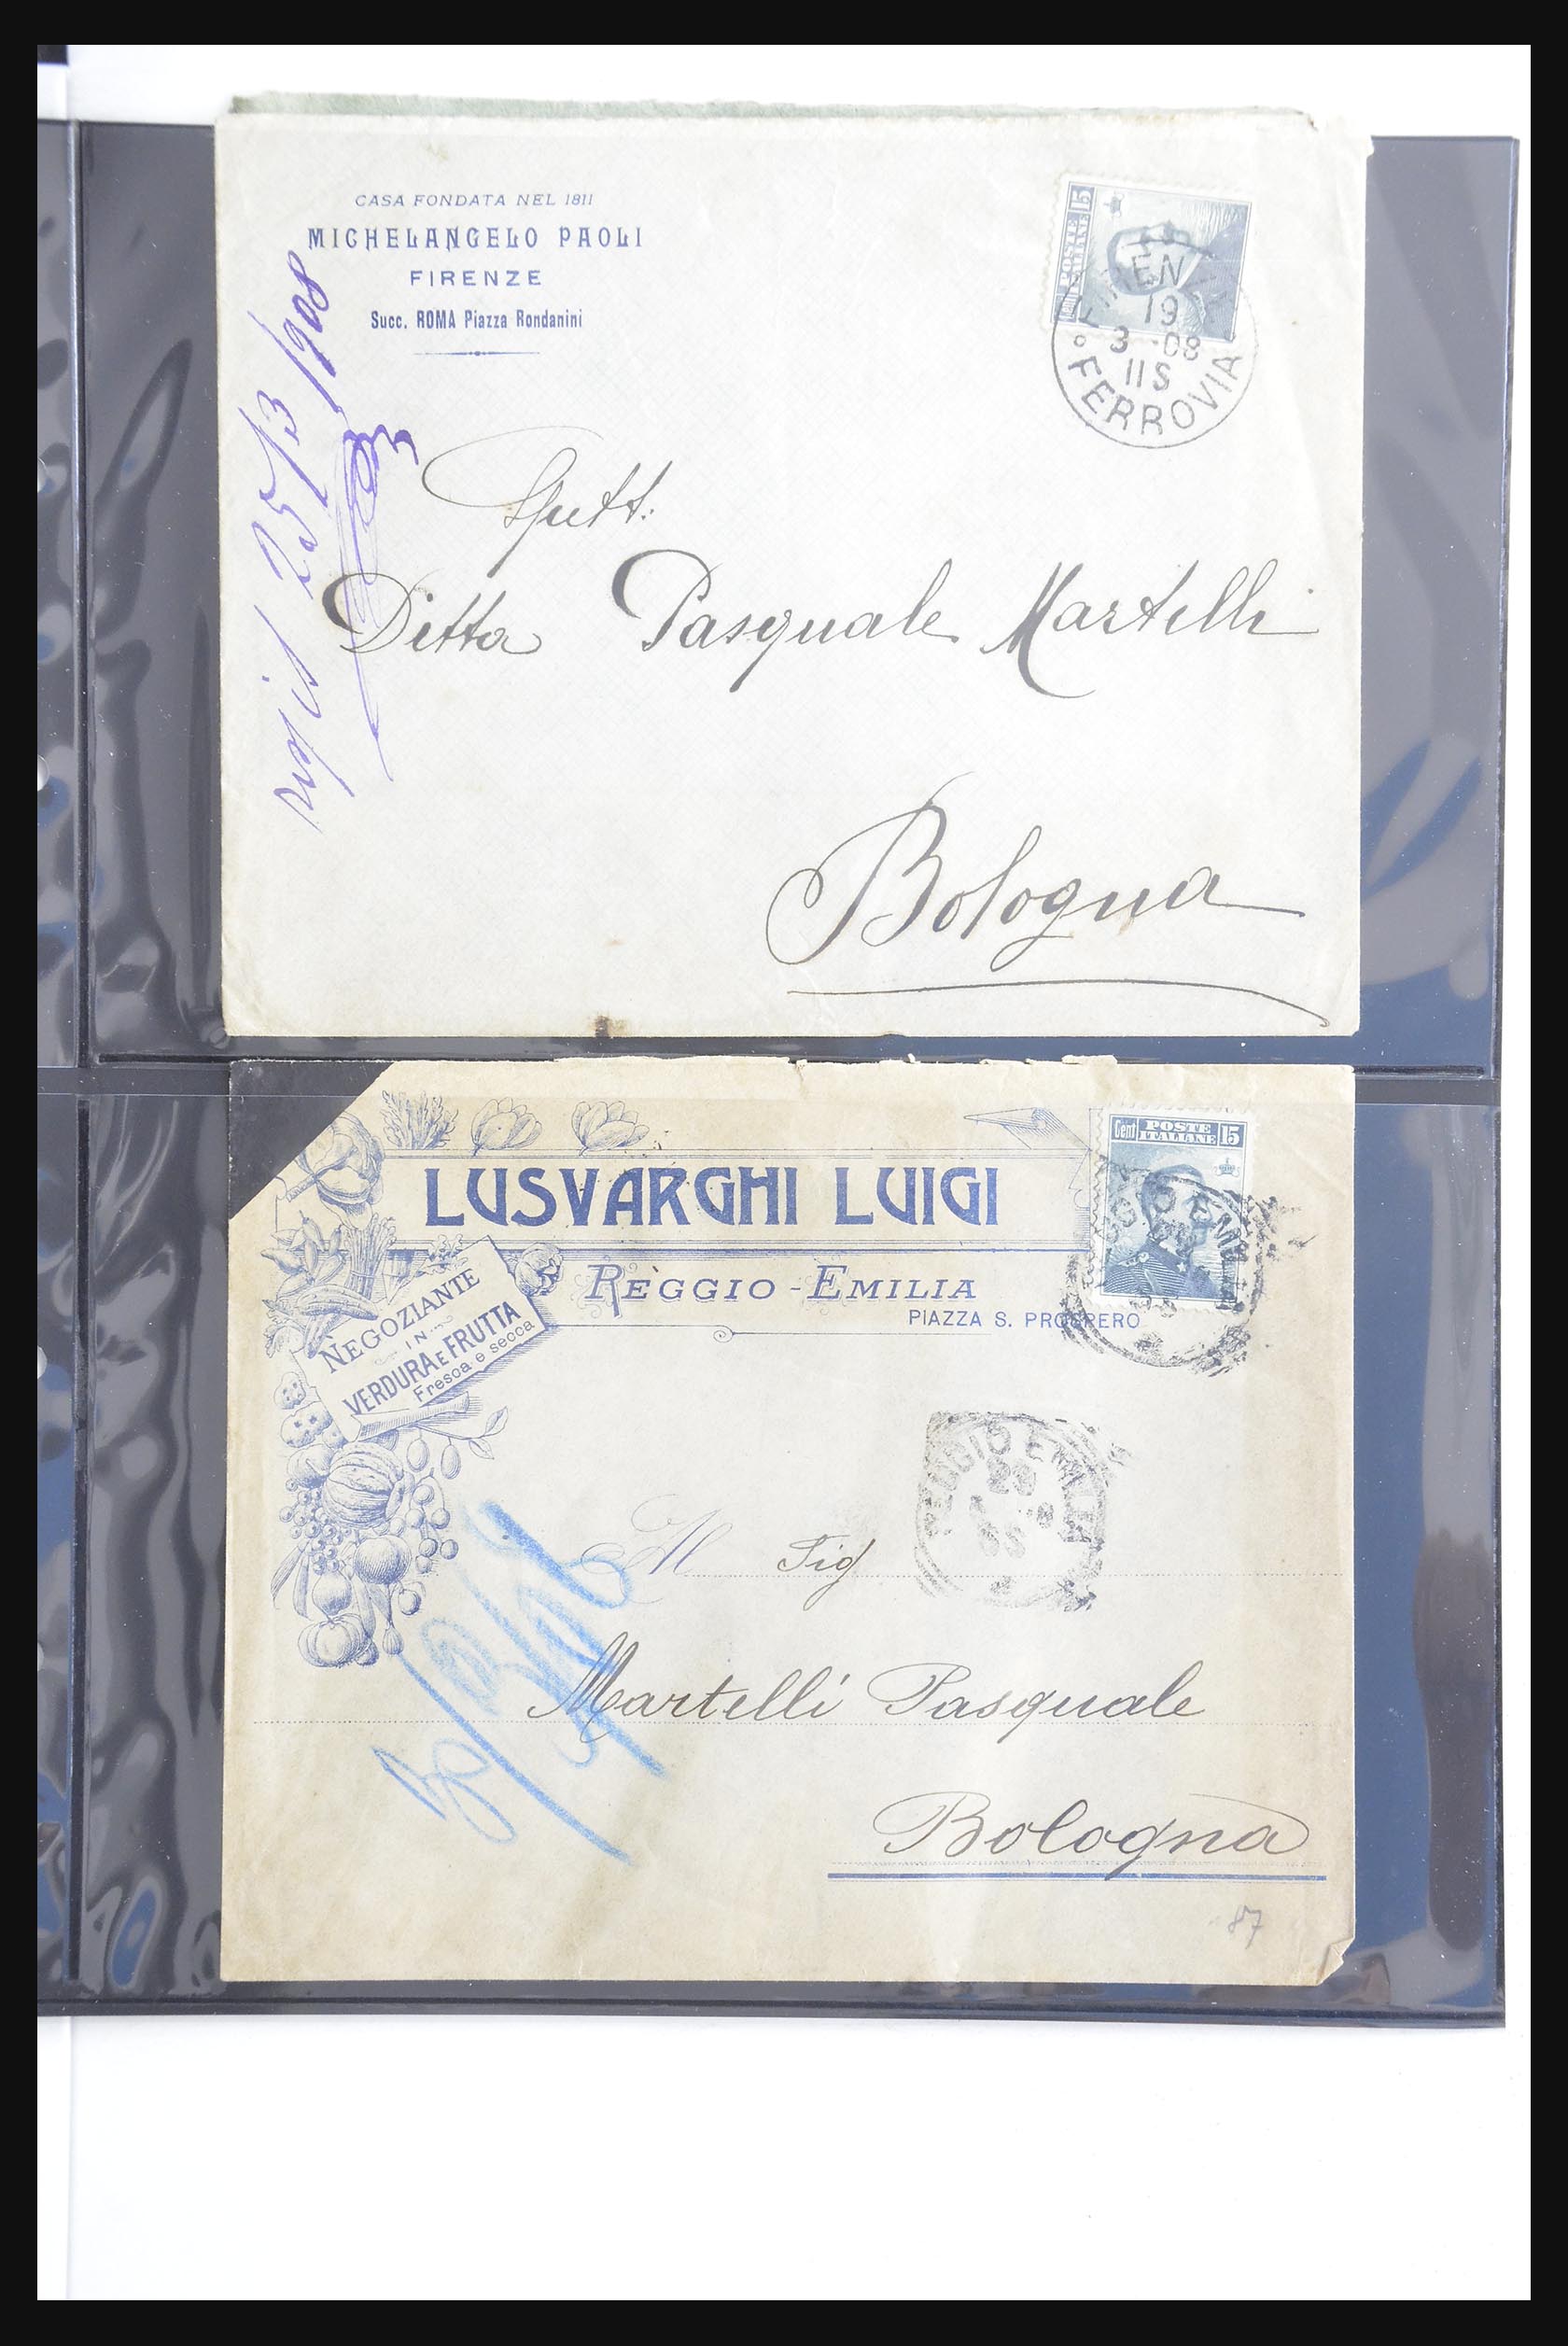 CASA FONDATA NEL 1811
MICHELANGELO PAOLI
FIRENZE
Succ. ROMA Piazza Rondanini
15
POSTE
ITALIANE
FIRENZE
19
3 -08
11S
FERROVIA
25/3/908
Spett:
Ditta Pasquale Martelli
Bologna
LUSVARGHI LUIGI
REGGIO-EMILIA
PIAZZA S. PROSPERO
NEGOZIANTE
IN
VERDURA E FRUTTA
Fresca e secca
Cent POSTE 15
ITALIANE
REGGIO EMILIA
REGGIO EMILIA
Al Sig
Martelli Pasquale
Bologna
87